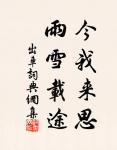 今我来思
雨雪載途
出車詞典網集